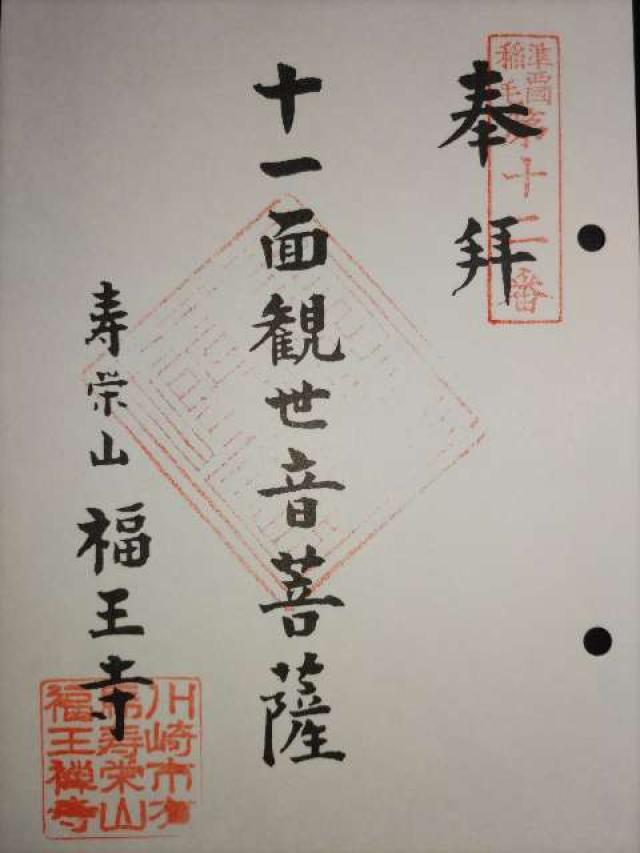 準西國
稲毛
第十二番
奉拝
十一面観世音菩薩
寿栄山 福王寺
川崎市有
馬寿栄山
福王禅寺